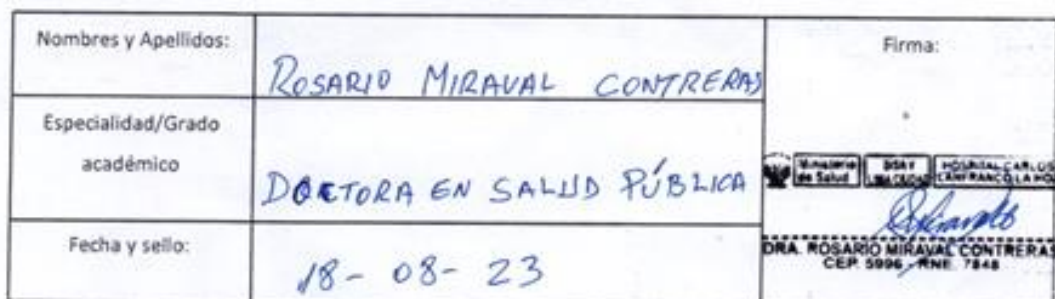 Nombres y Apellidos:
ROSARIO MIRAVAL CONTRERAS
Firma:
Especialidad/Grado
académico
DOCTORA EN SALUD PÚBLICA
Ministerio
de Salud
HOSPITAL CARLOS
LANFRANCO LA HOZ
Fecha y sello:
18-08-23
DRA. ROSARIO MIRAVAL CONTRERAS
CEP. 5996 - RNE. 7848